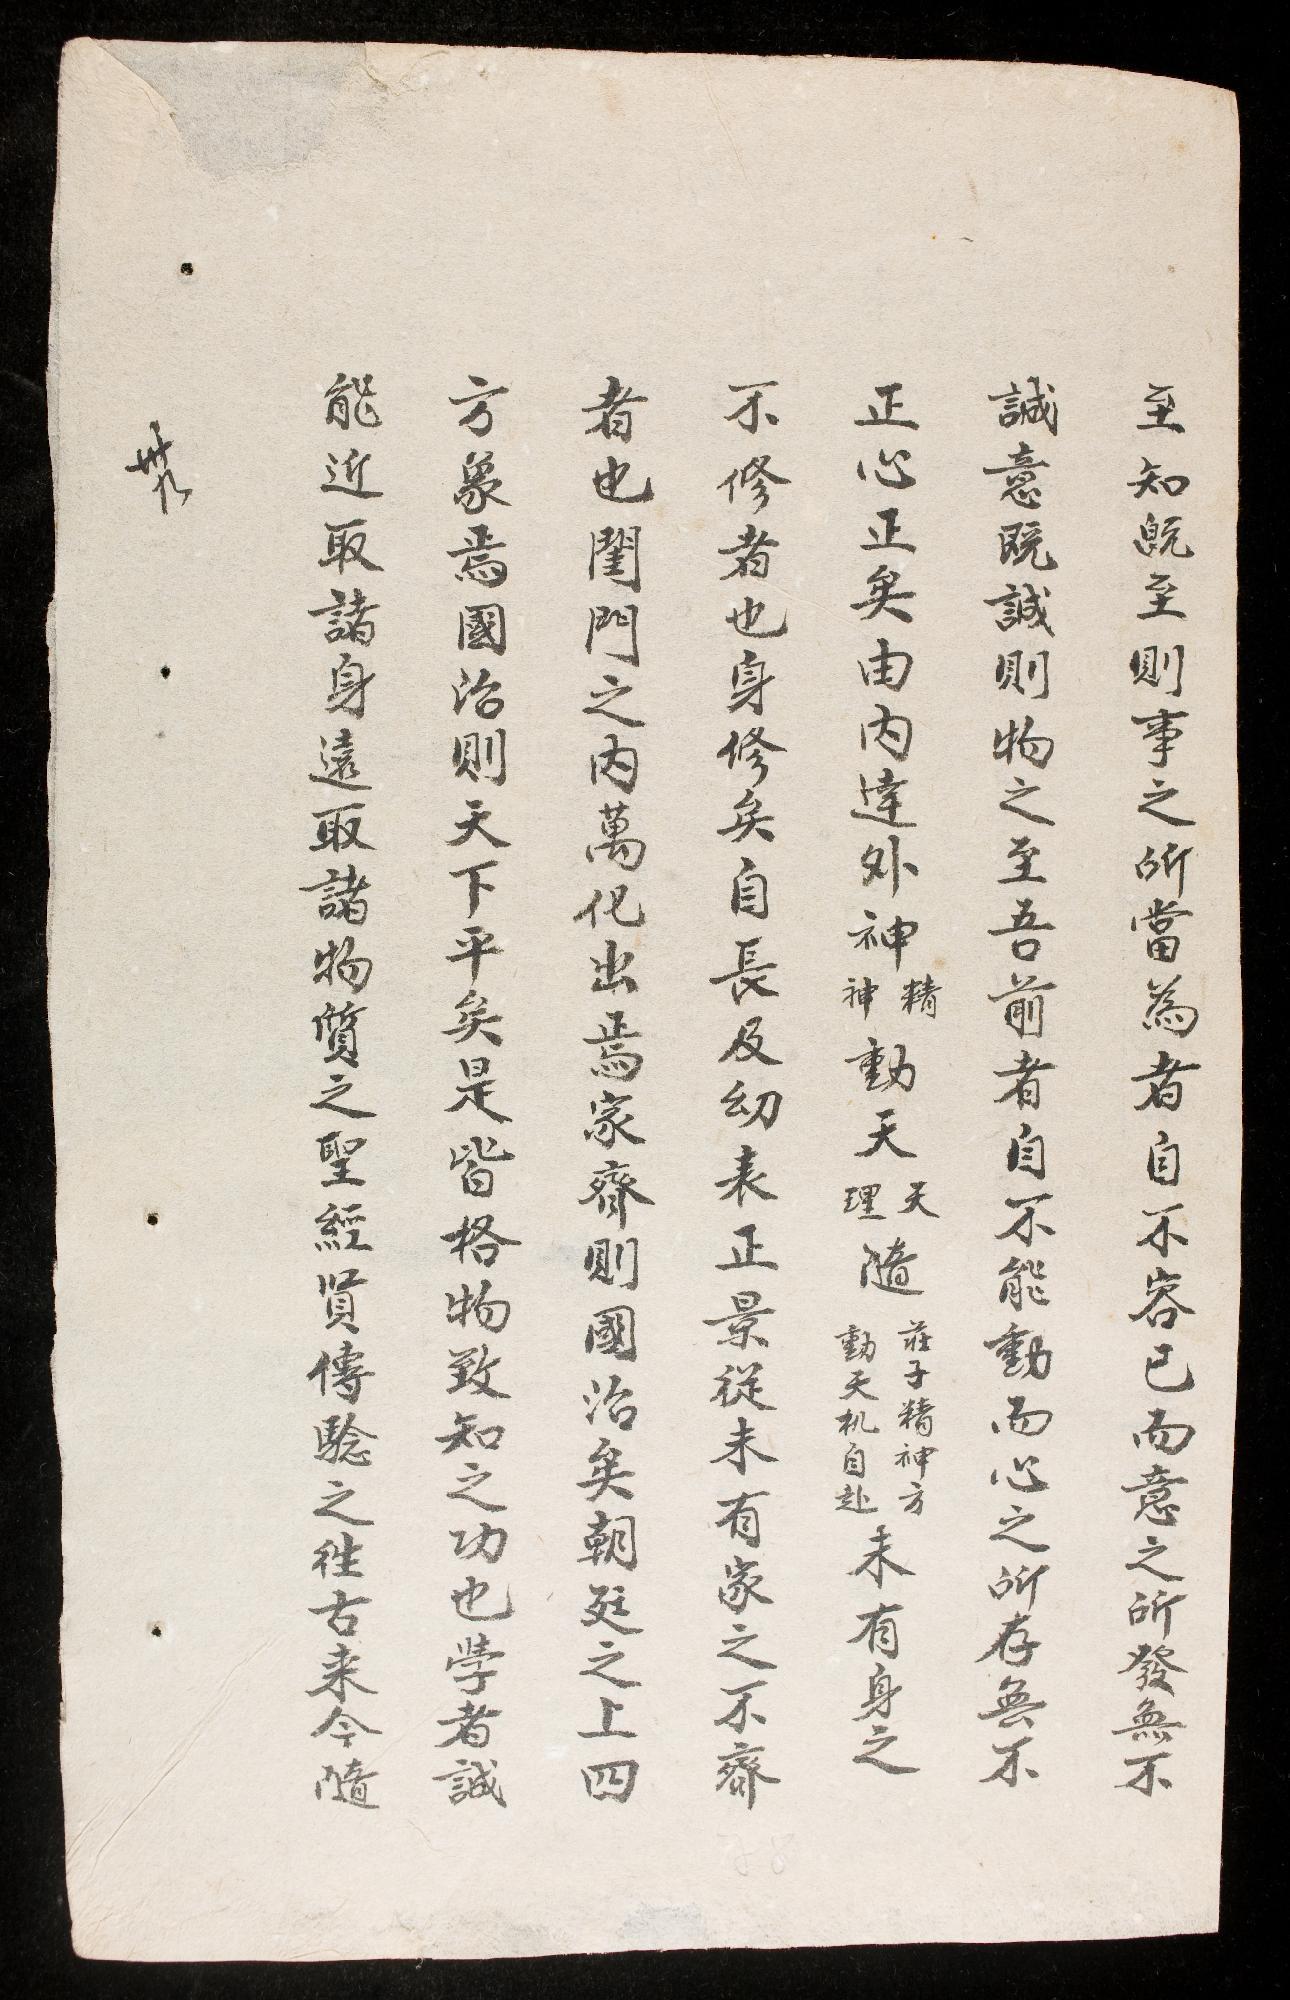 至知既至則事之所當為者自不容已而意之所發無不
誠意既誠則物之至吾前者自不能動而心之所存無不
正心正矣由内達外神精神動天天理隨莊子精神方動天机自赴未有身之
不修者也身修矣自長及幼表正景從未有家之不齊
者也閨門之内萬化出焉家齊則國治矣朝廷之上四
方象焉國治則天下平矣是皆格物致知之功也学者誠
能近取諸身遠取諸物質之聖經賢傳騐之徃古来今隨